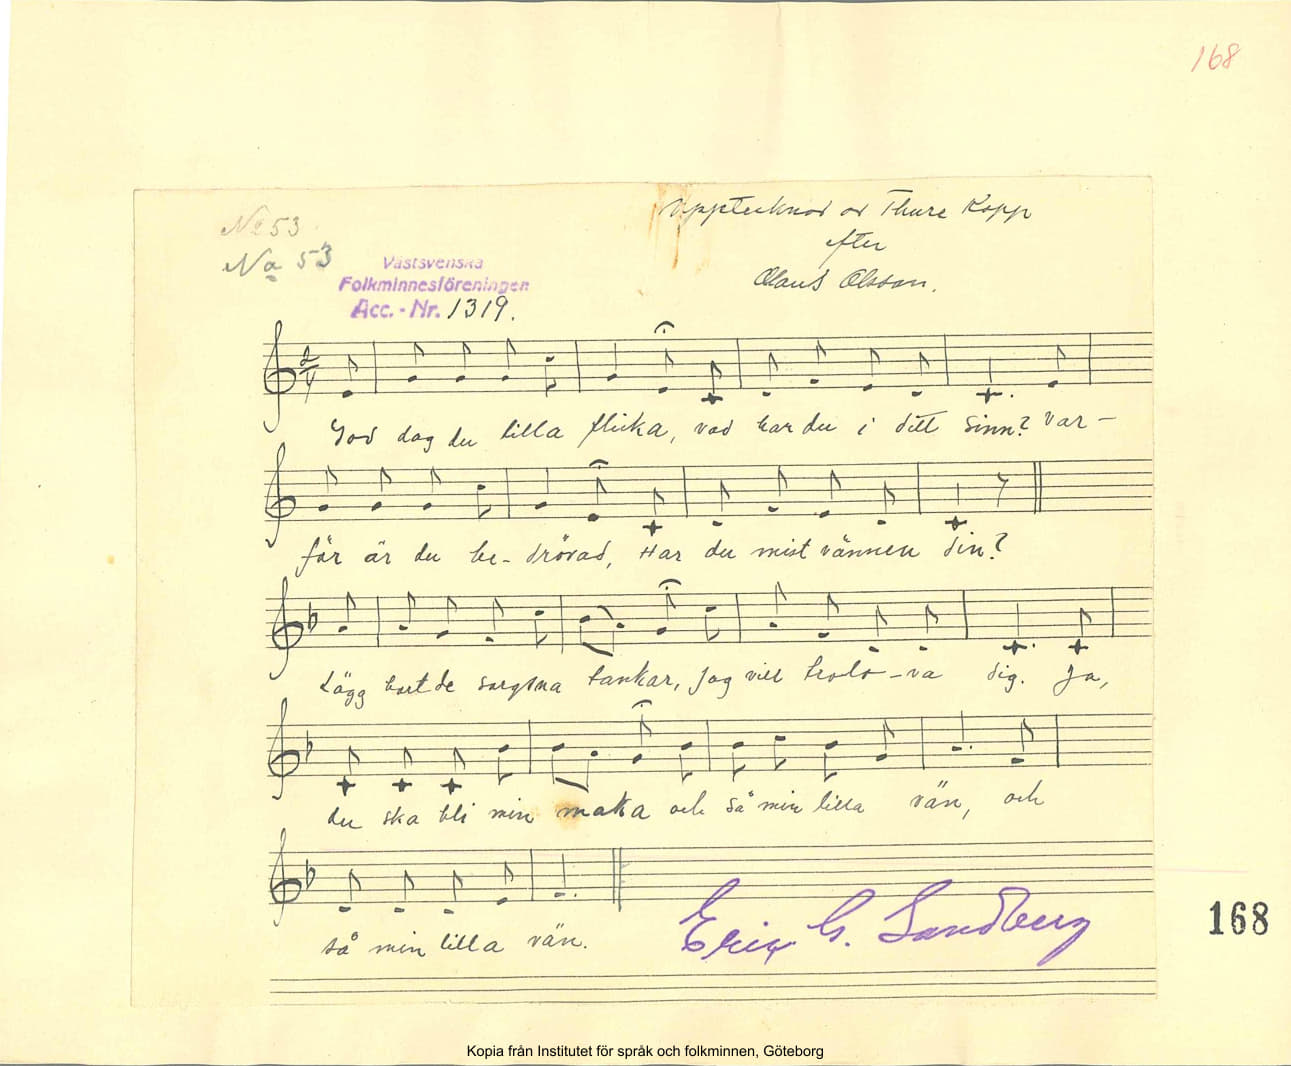 168
Upptecknad av Thure Kopp
efter
Olaus Olsson.
No 53
No 53
Västsvenska
Folkminnesföreningen
Acc. - Nr. 1319.
2/4
God dag du lilla flicka, vad har du i ditt sinn? Var-
för är du be-drövad, Har du mist vännen din?
Lägg bort de sorgsna tankar, jag vill trolo-va dig. Ja,
du ska bli min maka och så min lilla vän, och
så min lilla vän.
Eric G. Sandberg
168
Kopia från Institutet för språk och folkminnen, Göteborg